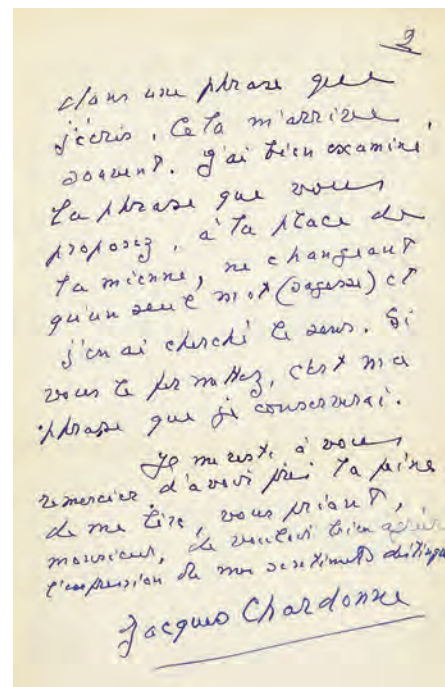 2
dans une phrase que
j'écris. Cela m'arrive
souvent. J'ai bien examiné,
la phrase que vous
proposez, à la place de
la mienne, ne changeant
qu'un seul mot (sagesse) et
j'en ai cherché le sens. Si
vous le permettez, c'est ma
phrase que je conserverai.
Il me reste à vous
remercier d'avoir pris la peine
de me lire, vous priant,
monsieur, de vouloir bien agréer
l'expression de mes sentiments distingués
Jacques Chardonne